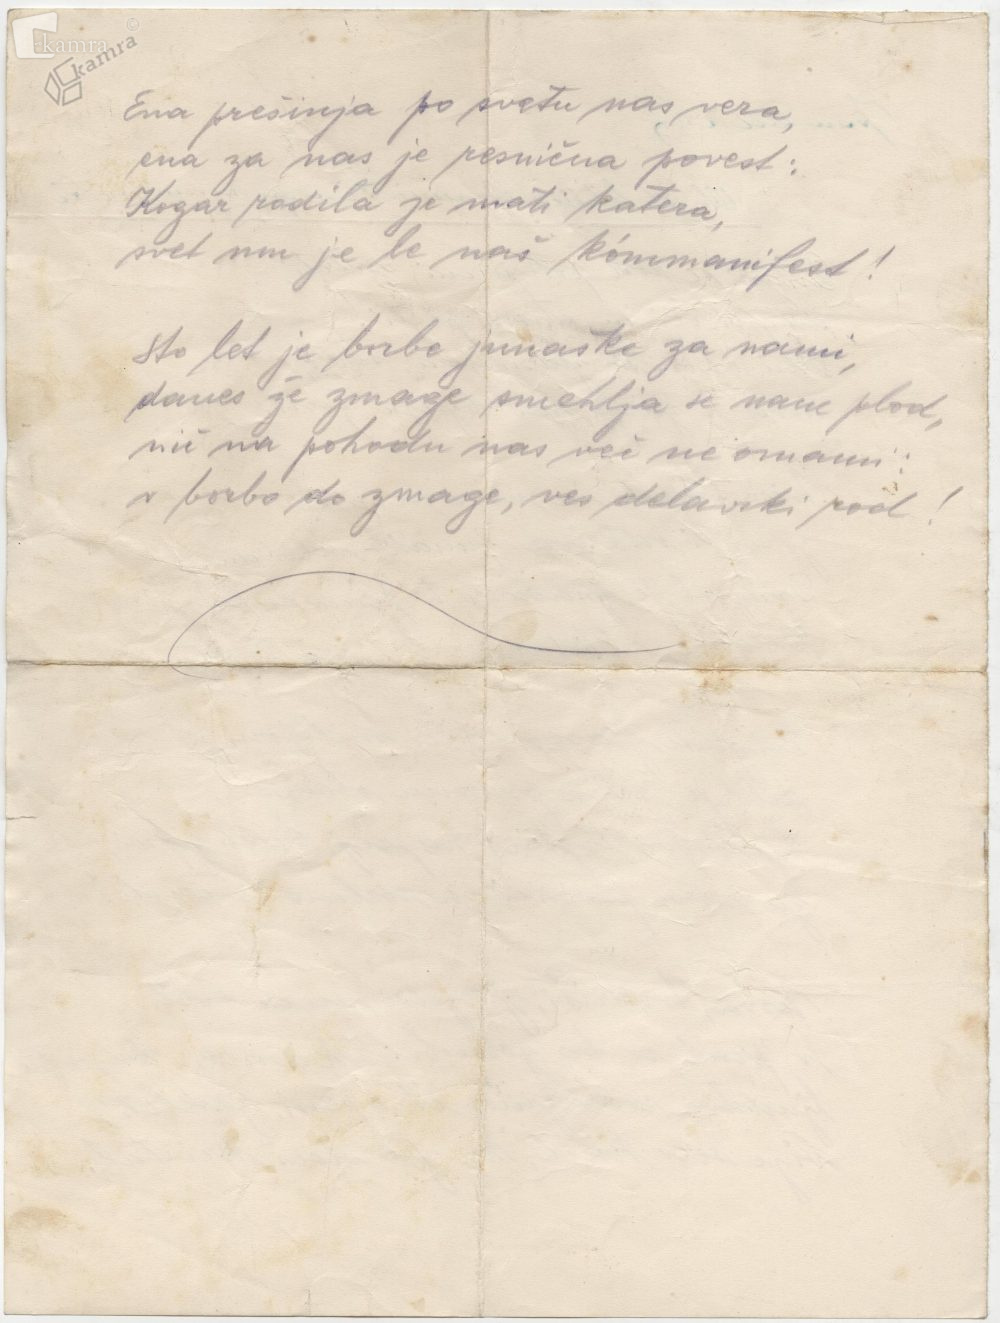 kamra
©
kamra
Ena prešinja po svetu nas vera,
ena za nas je resnična povest:
Kogar rodila je mati katera,
svet mu je le naš kómmanifest!
Sto let je borbe junaške za nami,
danes že zmage smehlja se nam plod,
nič na pohodu nas več ne omami:
v borbo do zmage, ves delavski rod!